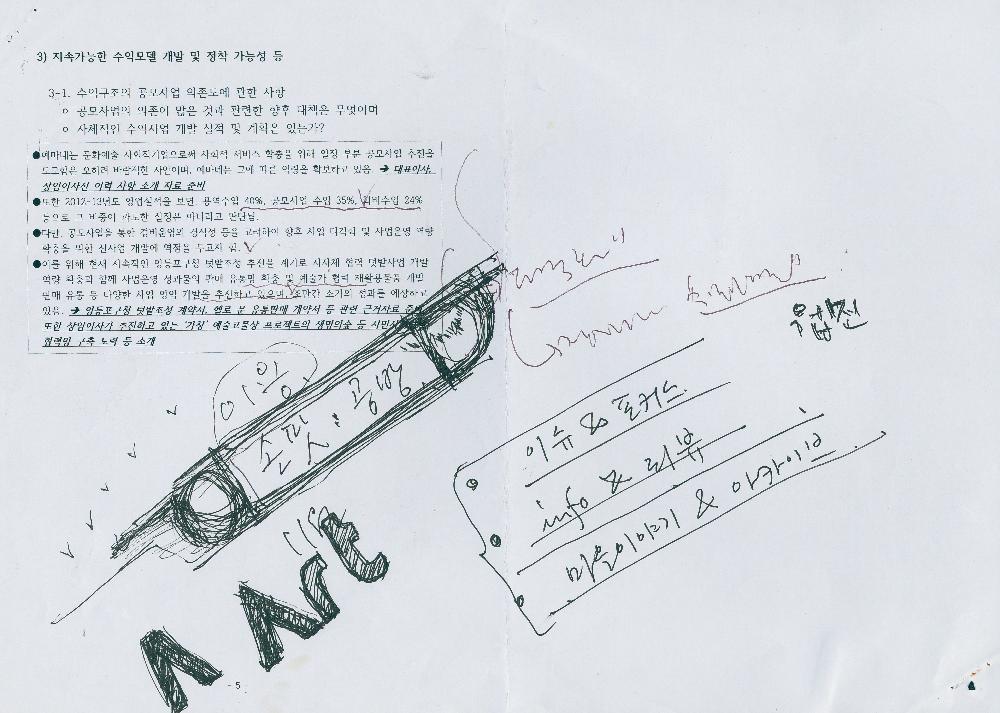 3) 지속가능한 수익모델 개발 및 정착 가능성 등
3-1. 수익구조의 공모사업 의존도에 관한 사항
○ 공모사업의 의존이 많은 것과 관련한 향후 대책은 무엇이며
○ 자체적인 수익사업 개발 실적 및 계획은 있는가?
●예마네는 문화예술 사회적기업으로써 사회적 서비스 확충을 위해 일정 부분 공모사업 추진을
도모함은 오히려 바람직한 사안이며, 예마네는 그에 따른 역량을 확보하고 있음 → 대표이사,
상임이사진 이력 사항 소개 자료 준비
●또한 2012-13년도 영업실적을 보면, 용역수입 40%, 공모사업 수입 35%, 회비수입 24%
등으로 그 비중이 과도한 실정은 아니라고 판단됨.
●다만, 공모사업을 통한 결비운업의 경직성 등을 고려하여 향후 사업 다각화 및 사업운영 역량
확충을 위한 신사업 개발에 역점을 두고자 함.
●이를 위해 현재 지속적인 영등포구청 텃밭조성 추진을 계기로 지자체 협력 텃밭사업 개발
역량 확충과 함께 사업운영 성과물의 판매 유통망 확충 및 예술가 협력 재활용물품 개발
판매 유통 등 다양한 사업 영역 개발을 추진하고 있으며, 조만간 소기의 성과를 예상하고
있음. → 영등포구청 텃밭조성 계약서, 헬로 문 유통판매 계약서 등 관련 근거자료 준비
또한 상임이사가 추진하고 있는 '가칭' 예술고물상 프로젝트의 생명의숲 등 시민사
협력망 구축 노력 등 소개
손맛: 공방
이슈 & 포커스
info & 리뷰
마을이야기 & 아카이브
Art
- 5